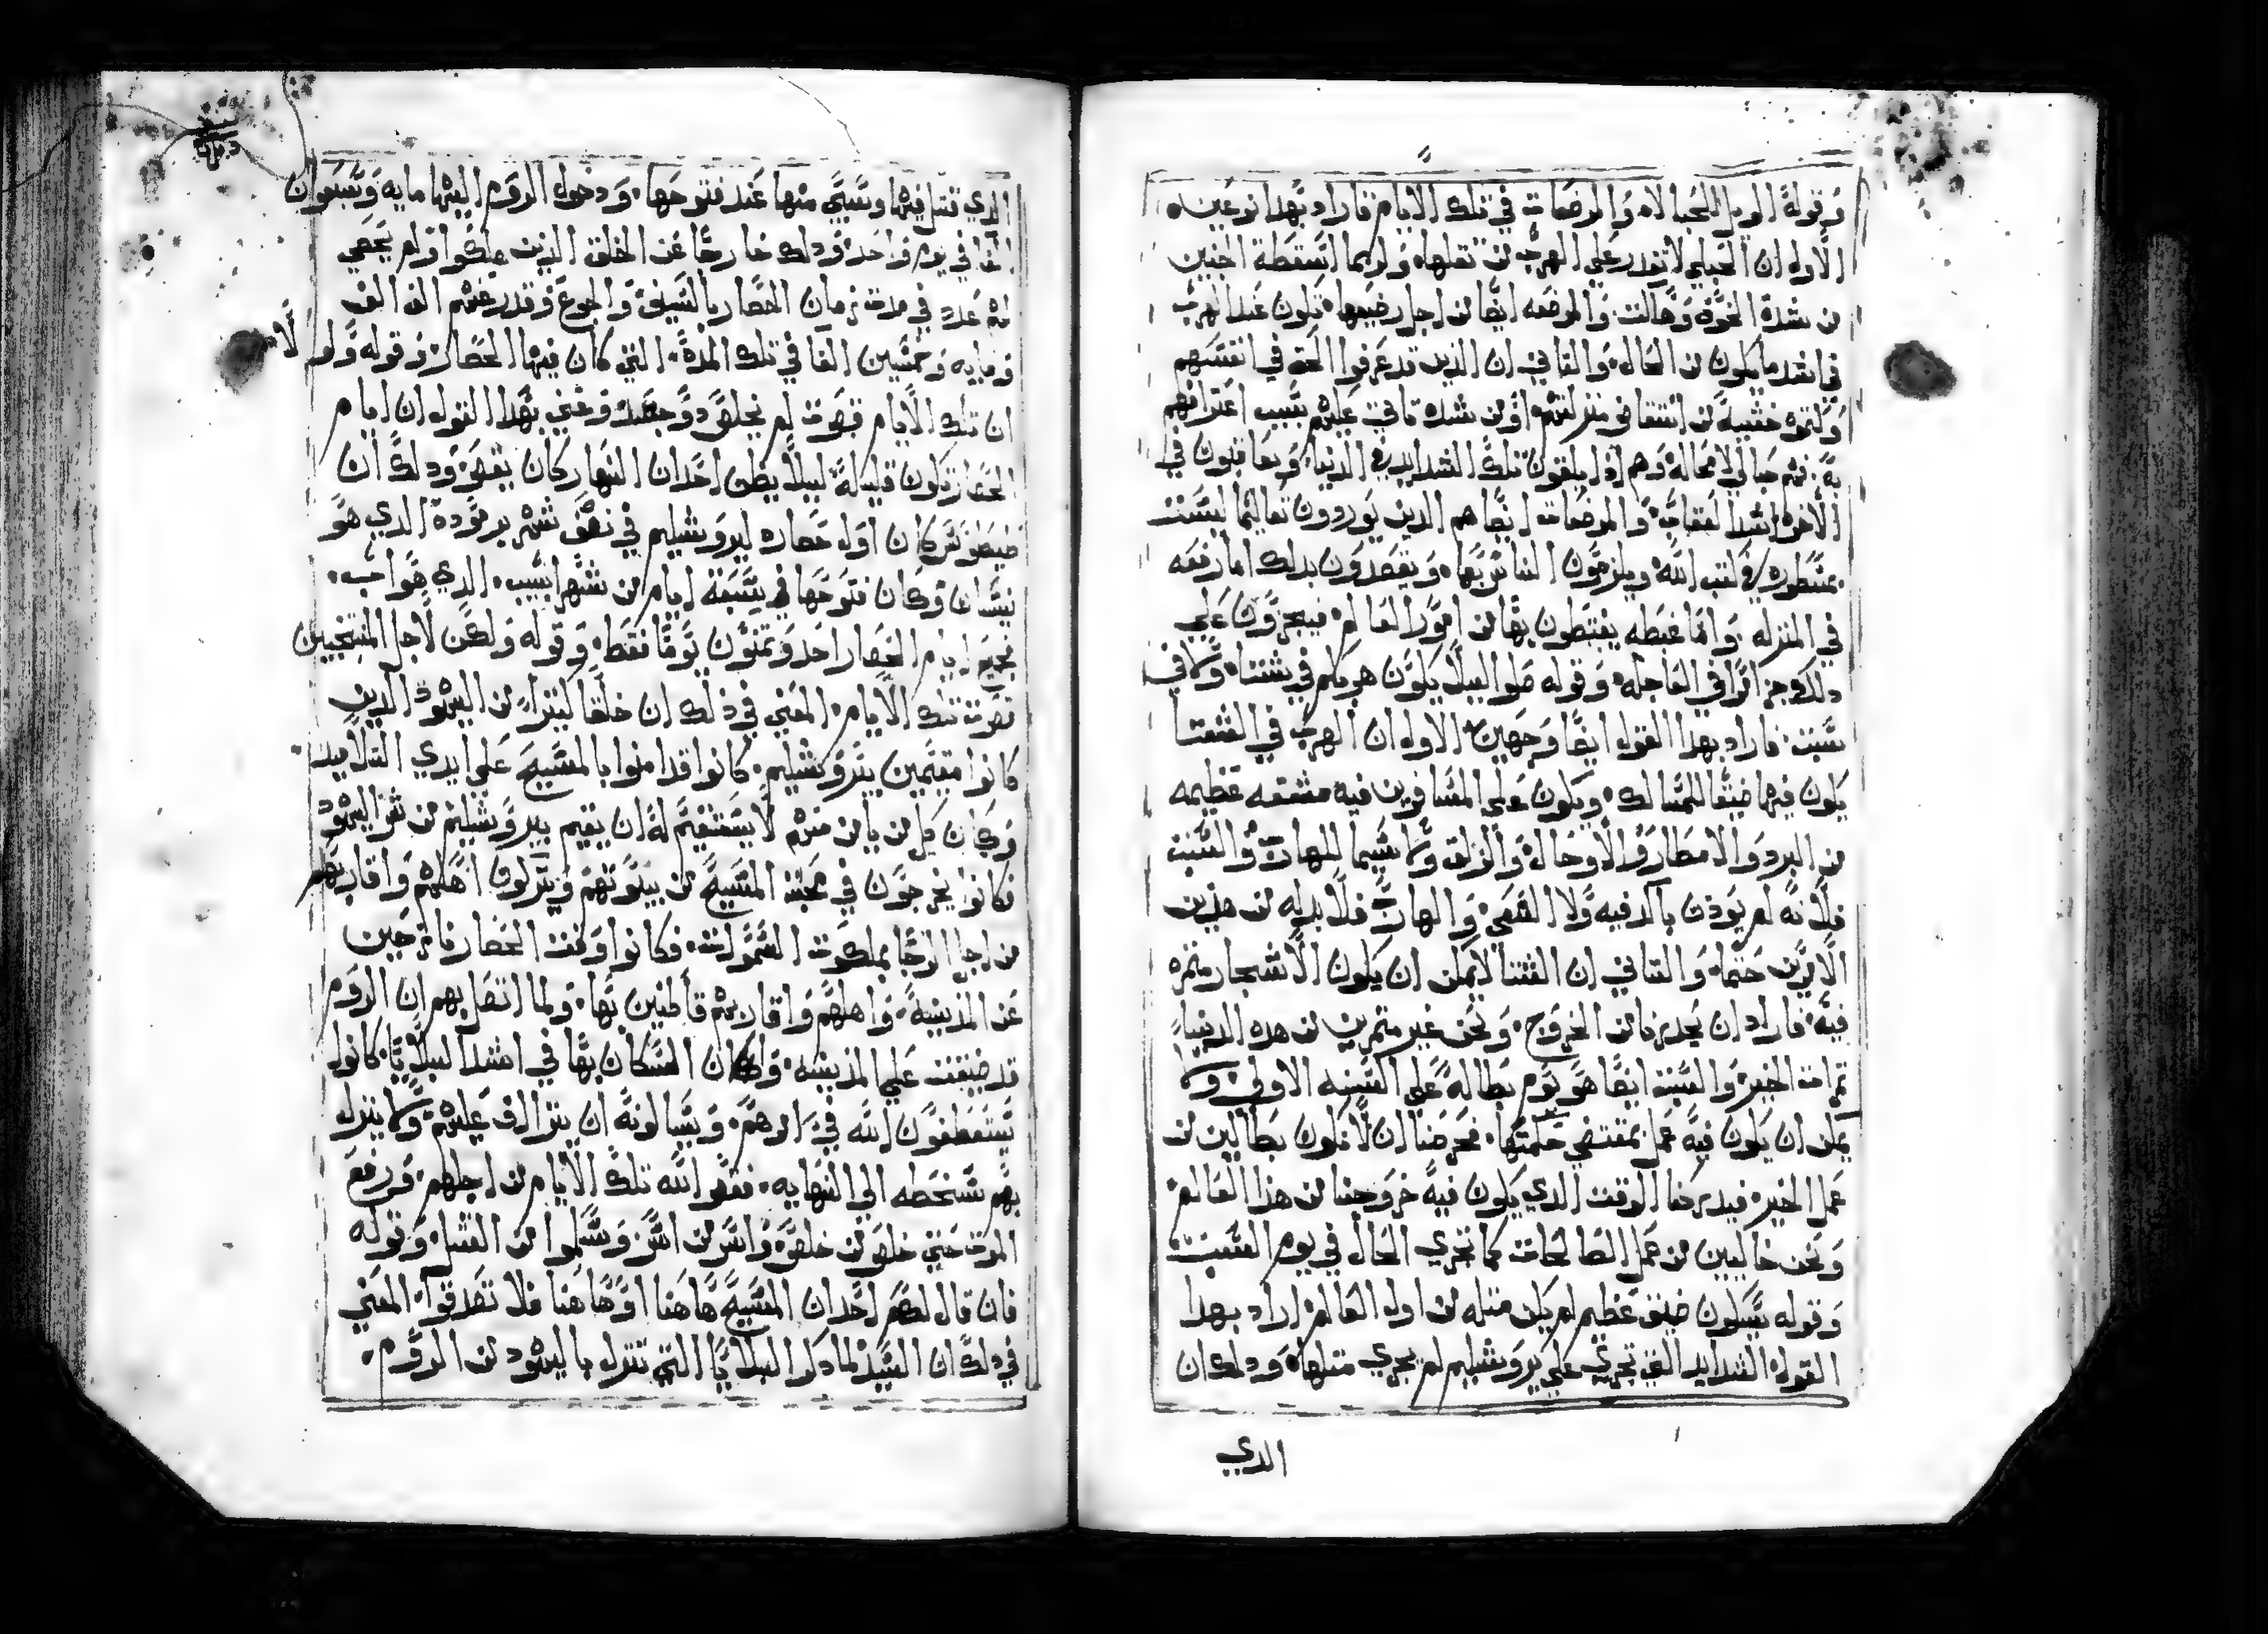 وقوله الويل للحبالا والمرضعات في تلك الايام فاراد بهدا نوعين
الاول ان الحبلي لا تقدر علي الهرب من تقلها ولربما اسقطة الجنين
من شدة الخوف وهالت والمرضعه ايضا من اجل رضيعها تكون عند الهرب
في اشد ما يكون من الحال والتاني ان الذين قد عرفوا الحق في انفسهم
وكتموه خشية من انتقاص منزلتهم او من شده تاتي عليهم بسبب اعترافهم
به فهم حبالي لا محالة وهم اذا يلقون تلك الشدايد في الدنيا ويعاقبون في
الاخره اشد العقاب والمرضعات ايضا هم الدين يوردون تعاليما ليست
مسطوره في كتب الله ويلزمون الناس بها ويقصدون بدلك اما رفعه
في المنزله واما غبطه يغتبطون بها من امور العالم فيجزون علي
دلك وجزا في العاجله وقوله صلوا ليلا يكون هربكم في شتا ولا في
سبت فاراد بهدا القول ايضا وجهين الاول ان الهرب في الشتا
يكون فيها ضيقا للمسالك ويكون علي المسافرين فيه مشقه عظيمه
من البرد والامطار والاوحال والزلق ولا سيما للهارب والسبت
فلانه لم يوذن بالـ فيه ولا السعي والهارب فلا بد له من هذين
الامرين حتما والتاني ان الشتا لا يمكن ان يكون الاشجار متمره
فيه فاراد ان يحدرنا من الخروج ونحن غير متمرين من هده الدنيا
تمرات الخير والسبت ايضا هو يوم بطاله علي السنه الاولي ولا
يمكن ان يكون فيه عمل بمقتضي حكمتها فحرضنا ان لا نكون بطالين من
عمل الخير فيدركنا الوقت الدي يكون فيه خروجنا من هذا العالم
ونحن خاليين من عمل الصالحات كما تجري الحال في يوم السبت
وقوله سيكون ضيق عظيم لم يكن متله من اول العالم اراد بهدا
القول الشدايد التي تجري علي يروشليم لم يجري متلها ودلك ان
الدي
الدي قتل فيها وسبي منها عند فتوحها ودخول الروم اليها مايه وسبعون
الفا في يوم واحد ودلك خارجا عن الخلق الدين هلكوا ولم يحصي
لهم عدد في مدت زمان الحصار بالسيف والجوع وقدر جثثهم الف الف
ومايه وخمسين الفا في تلك المدة التي كان فيها الحصار وقوله ولولا
ان تلك الايام قصرت لم يخلص دو جسد وعني بهدا القول ان ايام
الحصار تكون قليلة ليلا يظن احدان النهار كان يقص ودلك ان
طيطوس كان اول حصاره ليروشليم في نصف شهر برموده الدي هو
نيسان وكان فتوحها في تسعة ايام من شهر ابيب الدي هو اب
فجميع ايام الحصار احد وتمنون يوما فقط وقوله ولكن لاجل المنتخبين
قصرت تلك الايام المعني في ذلك ان خلقا ليترا من اليهود الدين
كانوا مقيمين بيروشليم كانوا قد امنوا بالمسيح علي ايدي التلاميد
وكان كل من يامن منهم لا يستقيم له ان يقيم بيروشليم من شر اليهود
فكانوا يخرجون في محبت المسيح من بيوتهم ويتركون اهلهم واقاربهم
من اجل الرجا بملكوت السموات فكانوا وقت الحصار خارجين
عن المدينة واهلهم واقاربهم قاطنين بها ولما اتصل بهم ان الروم
قد ضيقت علي المدينه وان السكان بها في اشد البلايا كانوا
يستعطفون الله في امرهم ويسالونه ان يترااف عليهم ولا ينزل
بهم سخطه الي النهايه فقصر الله تلك الايام من اجلهم ورفع
الموت حتي خلص من خلص واسر من اسر وسلموا من القتل وقوله
فان قال لكم احدان المسيح هاهنا او هاهنا فلا تصدقوا المعني
في دلك ان السيد لما دكر البلايا التي تنزل باليهود من الروم